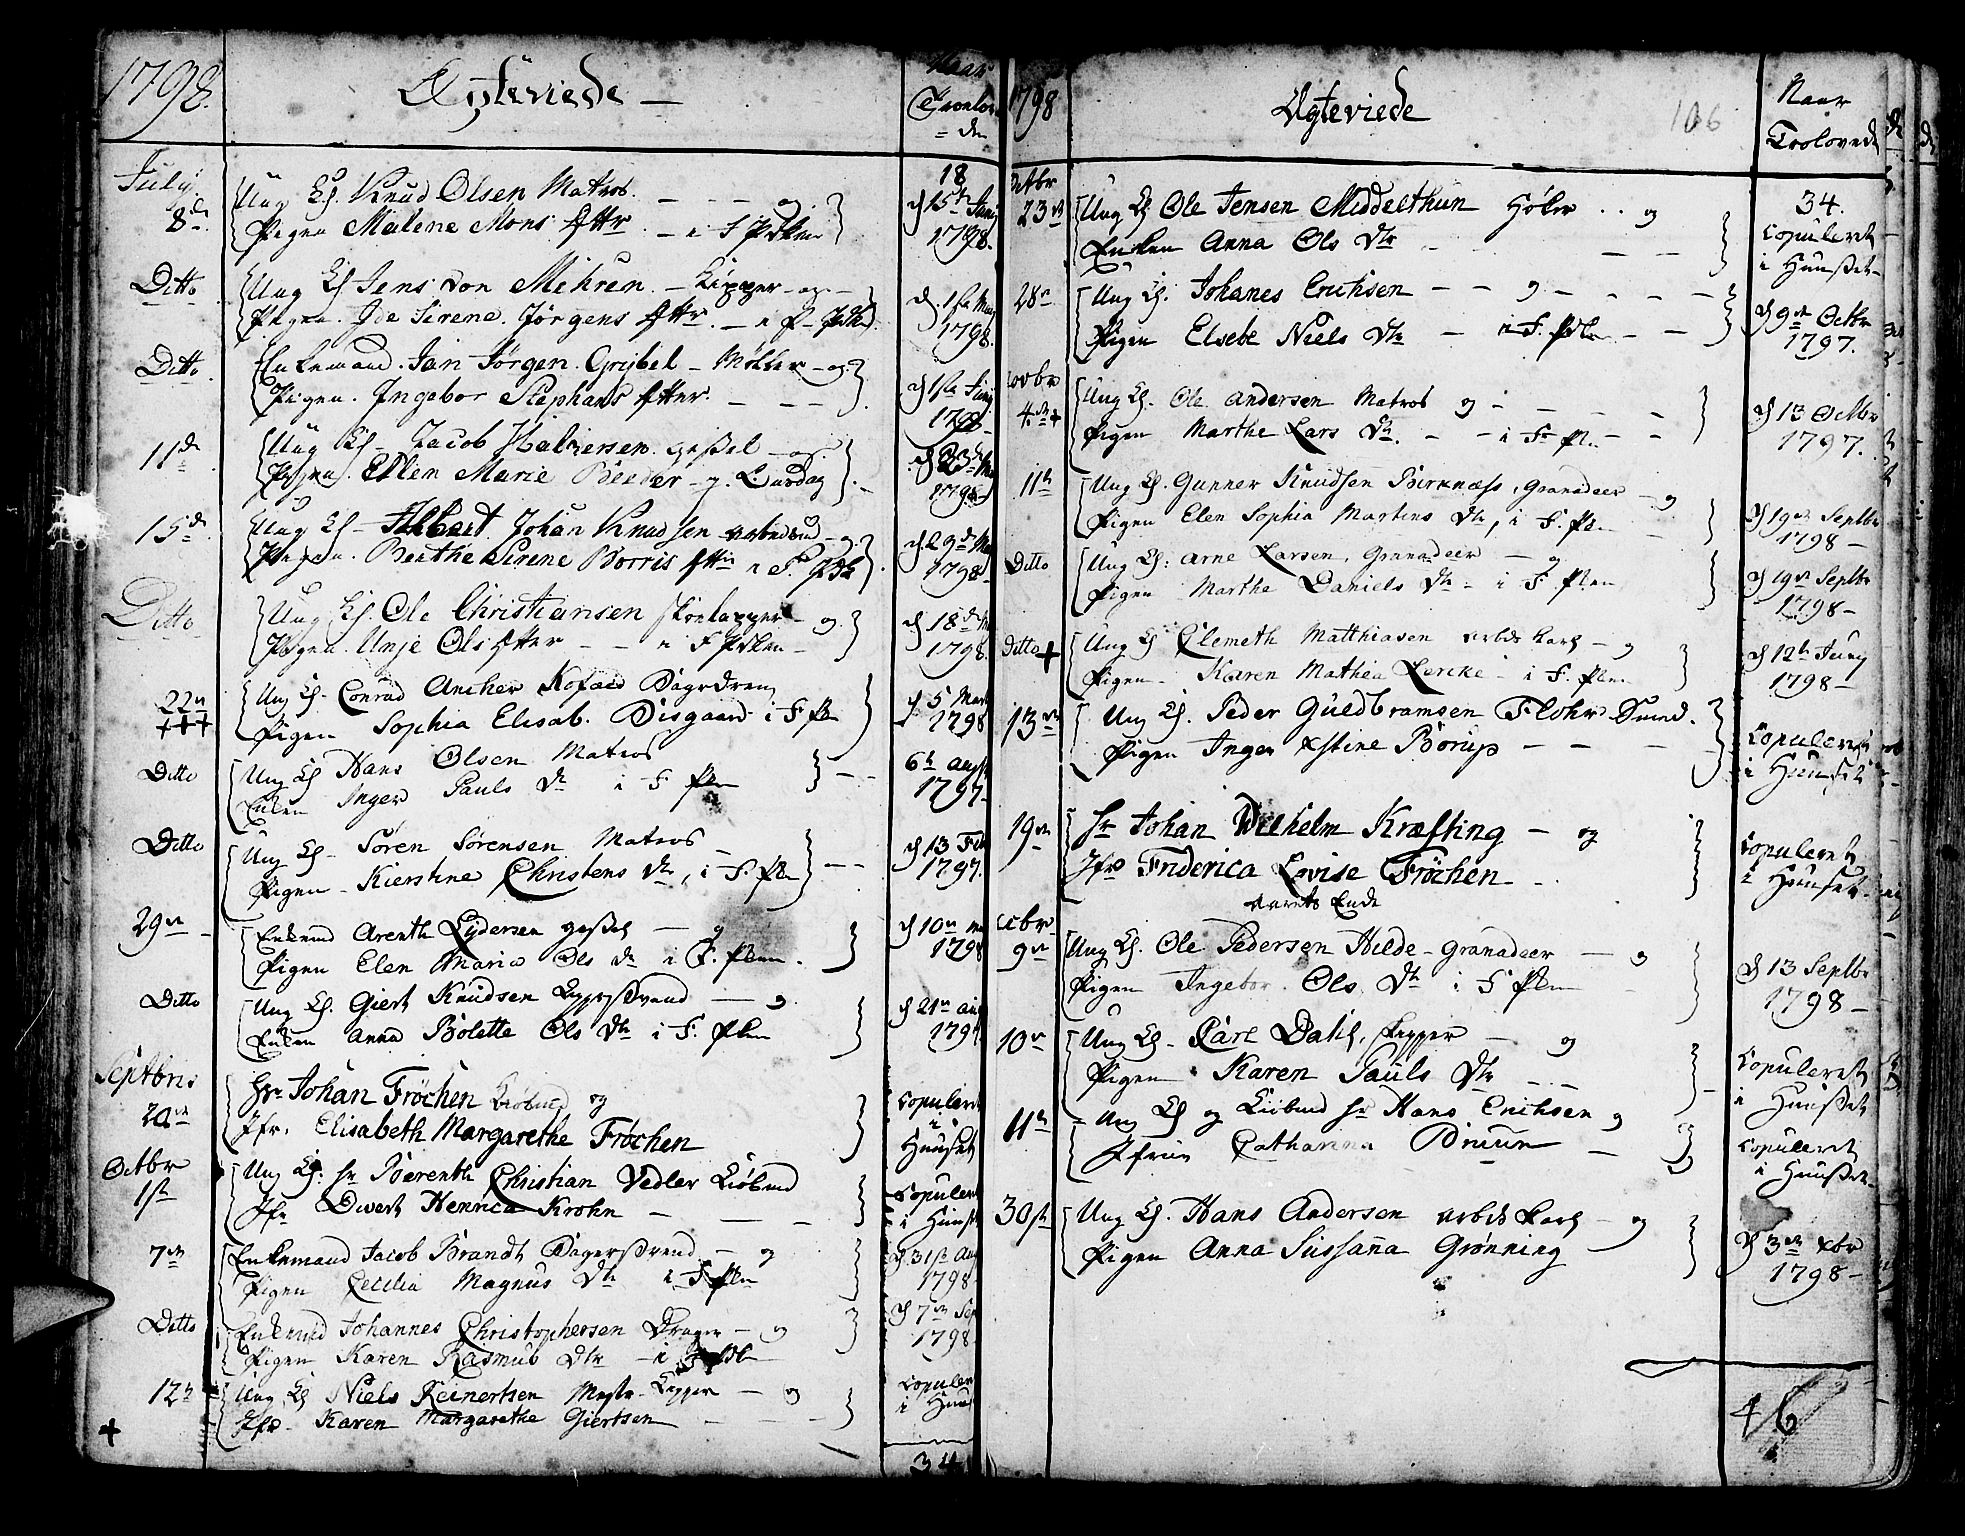 1798.
Ægteviede —
Naar
Troelov
= den
18
July
8de
Ung K. Knud Olsen Matros. — — og
Pigen Malene Mons Dttr — i F
d 15te Juny
1798.
Ditto
Ung K Jens von Mehren — Kipper — og —
Pigen. Ide Sirene. Jørgens Dttr. — i F
d. 1ste May
1798.
Ditto
Enkemand. Jan Jørgen Grybel — Møller — og
Pigen. Ingebor Stephans Dtter. — — —
d 1ste Juny
1798
11de
Ung K — Jacob Halversen gesel — og
Pigen. Ellen Marie Beeder — Lurdag
d 23de
1798
15de
Ung K — Johan Knudsen — og
Pigen. Berthe Sirene Borris Dttr i F.
d 29de
1798
Ditto
Ung K. Ole Christiansen skoelapper — og
Pigen. Unje Ols Dtter — — i F
d 18de
1798.
22n
+++
Ung K. Conrad Ancher Kofoed
Pigen Sophia Elisab. Disgaard i F. Pl
d 5 Mar
1798
Ditto
Ung K Hans Olsen Matros
Enken Inger Pauls Dr i F Plen
6t aug
1797
Ditto
Ung K — Søren Sørensen Matros —
Pigen — Kierstine Christens Dtr, i F. Pl
d 13 Feb
1797.
29de
Enkemd Arenth Lydersen gesel — og
Pigen Elen Maria Ols Dr i F. Plen.
d 10de
1798
Ditto
Ung K. Giert Knudsen — og
Enken Anna Bolette Ols Dtr i F. Plen
d 21de aug
179
Septbris
20de
Hr. Johan Frøchen Kiøbmd og
Jfr. Elisabeth Margarethe Frøchen
Copuleret
i
Huuset
Octbr
1ste
Ung K. Sr Berenth Christian Vedler Kiøbmd
Jfr Divert Henrica Krohn — — —
Copuleret
i Huuset
7de
Enkemand Jacob Brandt — og
Pigen Cecilia Magnus Dtr i F. Plen
d. 31st Aug
1798
Ditto
Enkemd Johannes Christophersen Drager — og
Pigen Karen Rasmus Dtr — i F
d 7de Sep
1798
12te
+
Ung K Niels Reinertsen Mestr. Kipper — og
Jfr. Karen Margarethe Giertsen — — —
Copuler
i Huus
34
1798
Ægteviede
106
Naar
Troloved
34.
Octbr
23de
Ung K Ole Jensen Middelthun Høker .. og
Enken Anna Ols Dtr —
Copuleret
i Huuset
28de
Ung K. Johanes Erichsen — — og — — —
Pigen Elsebe Niels Dtr — i F. Plen — —
d 9de Octbr
1797.
ovbr
4de +
Ung K. Ole Andersen Matros og — — —
Pigen Marthe Lars Dtr. — — i F Pl. — —
d 13 Octbr
1797.
11te
Ung K. Gunner Knudsen Birknæss, Granadeer — og
Pigen Elen Sophia Martins Dtr, i F. Plen —
d 19de Septbr
1798 —
Ditto
Ung K: Arne Larsen, Granadeer — og
Pigen Marthe Daniels Dtr — i F Plen
d 19de Septbr
1798 —
Ditto +
Ung K Clemeth Matthiasen arbds karl — og
Pigen — Karen Mathea Lercke — i F. Plen
d 12te Juny
1798 —
13de
Ung K. Peder Guldbramsen Flohr Smed.
Pigen Inger Xstine Borup — — — —
Copuleret
i Huuset
19de
Hr Johan Wilhelm Kræfting — og
Jfr Friderica Lovise Frøchen —
Aarets Ende
Copuleret
i Huuset
ecbr
9de
Ung K. Ole Pedersen Hilde — Granadeer — og
Pigen Ingebor Ols Dtr i F Plen —
d 13 Septbr
1798 —
10de
Ung K — Carl Dahl, Kipper — og
Pigen Karen Pauls Dtr — —
Copuleret
i Huuset
11te
— Ung K og Kiøbmd Sr Hans Erichsen og
Jfrue Catharina Bruun —
Copuleret
i Huuset
30ste
Ung K. Hans Andersen arbds karl — og
Pigen Anna Sussana Grønning
d 3de xbr
1798 —
46